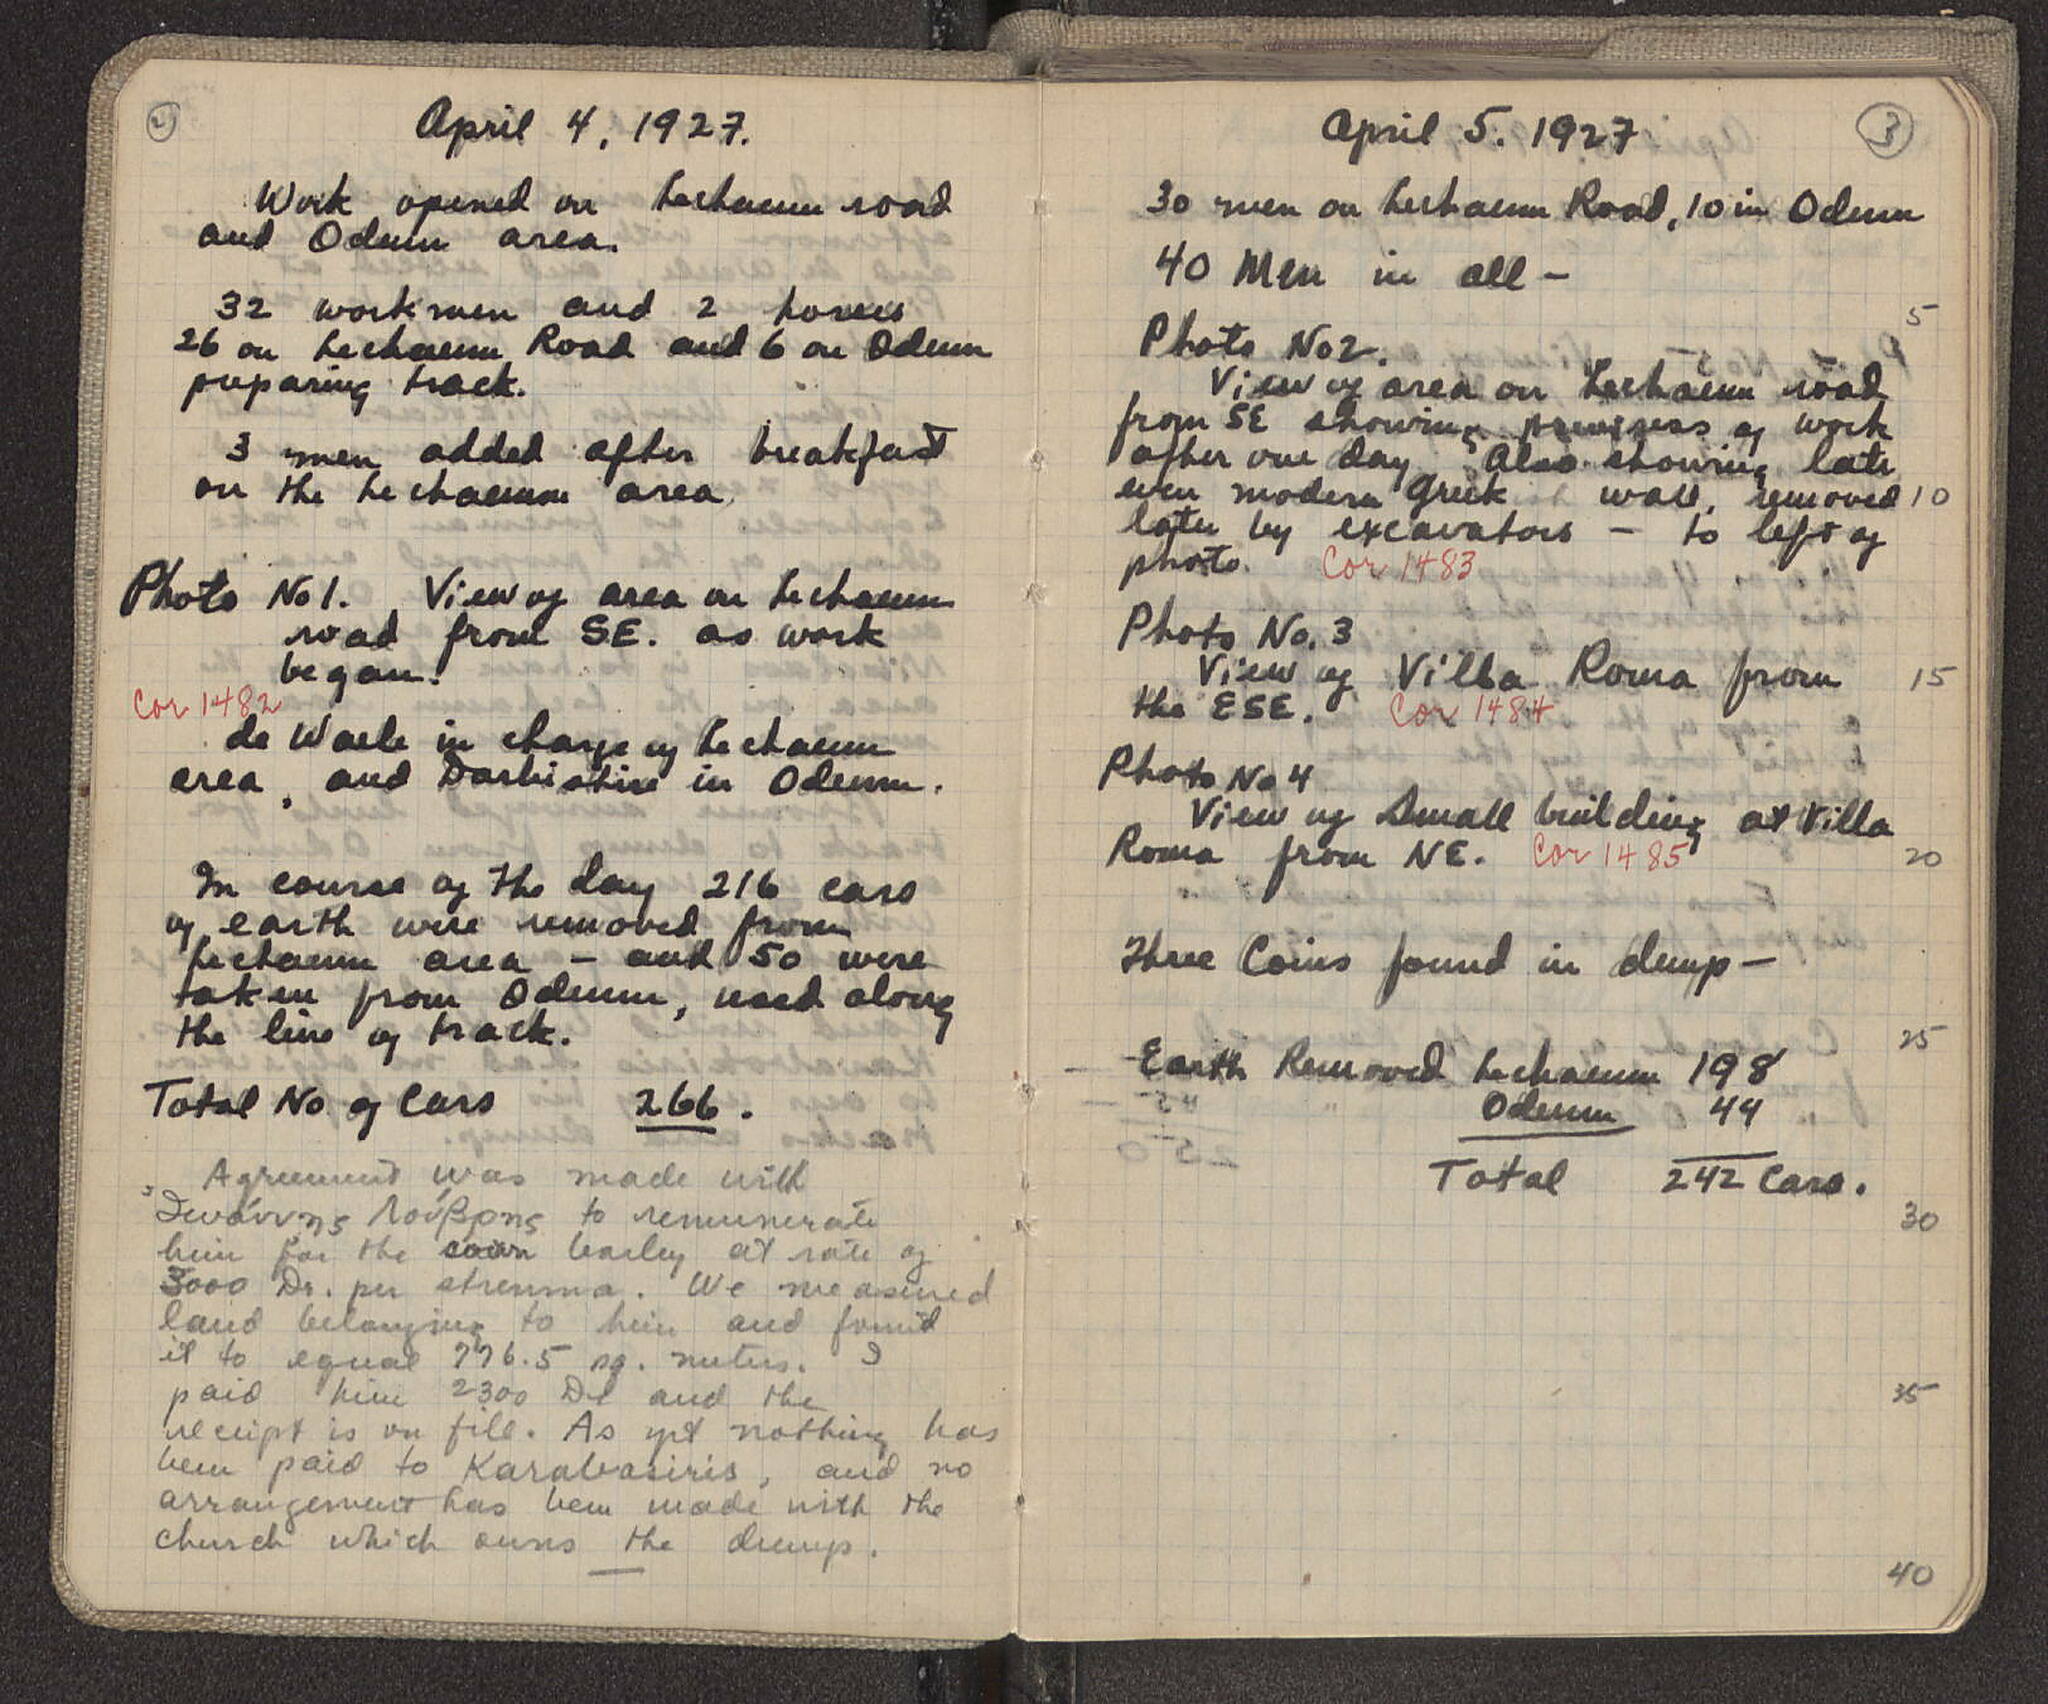 2
April 4, 1927.
Work opened on Lechaeum road
and Odeum area.
32 workmen and 2 horses
26 on Lechaeum Road and 6 on Odeum
preparing track.
3 men added after breakfast
on the Lechaeum area
Photo No 1. View of area on Lechaeum
road from SE. as work
began.
Cor 1482
de Waele in charge of Lechaeum
area, and Darbishire in Odeum.
In course of the day 216 cars
of earth were removed from
Lechaeum area – and 50 were
taken from Odeum, used along
the line of track.
Total No of Cars 266.
Agreement was made with
Ἰωάννης Λούβρης to remunerate
him for the sown barley at rate of
3000 Dr. per stremma. We measured
land belonging to him and found
it to equal 776.5 sq. meters. I
paid him 2300 Dr and the
receipt is on file. As yet nothing has
been paid to Karabasiris, and no
arrangement has been made with the
church which owns the dump.
3
April 5. 1927
30 men on Lechaeum Road, 10 in Odeum
40 Men in all –
5
Photo No 2.
View of area on Lechaeum road
from SE showing progress of work
after one day. Also showing late
even modern Greek wall, removed 10
later by excavators – to left of
photo. Cor 1483
Photo No. 3
View of Villa Roma from 15
the ESE. Cor 1484
Photo No 4
View of Small building at Villa
Roma from NE. Cor 1485 20
Three Coins found in dump –
25
Earth Removed Lechaeum 198
" Odeum 44
Total 242 Cars.
30
35
40